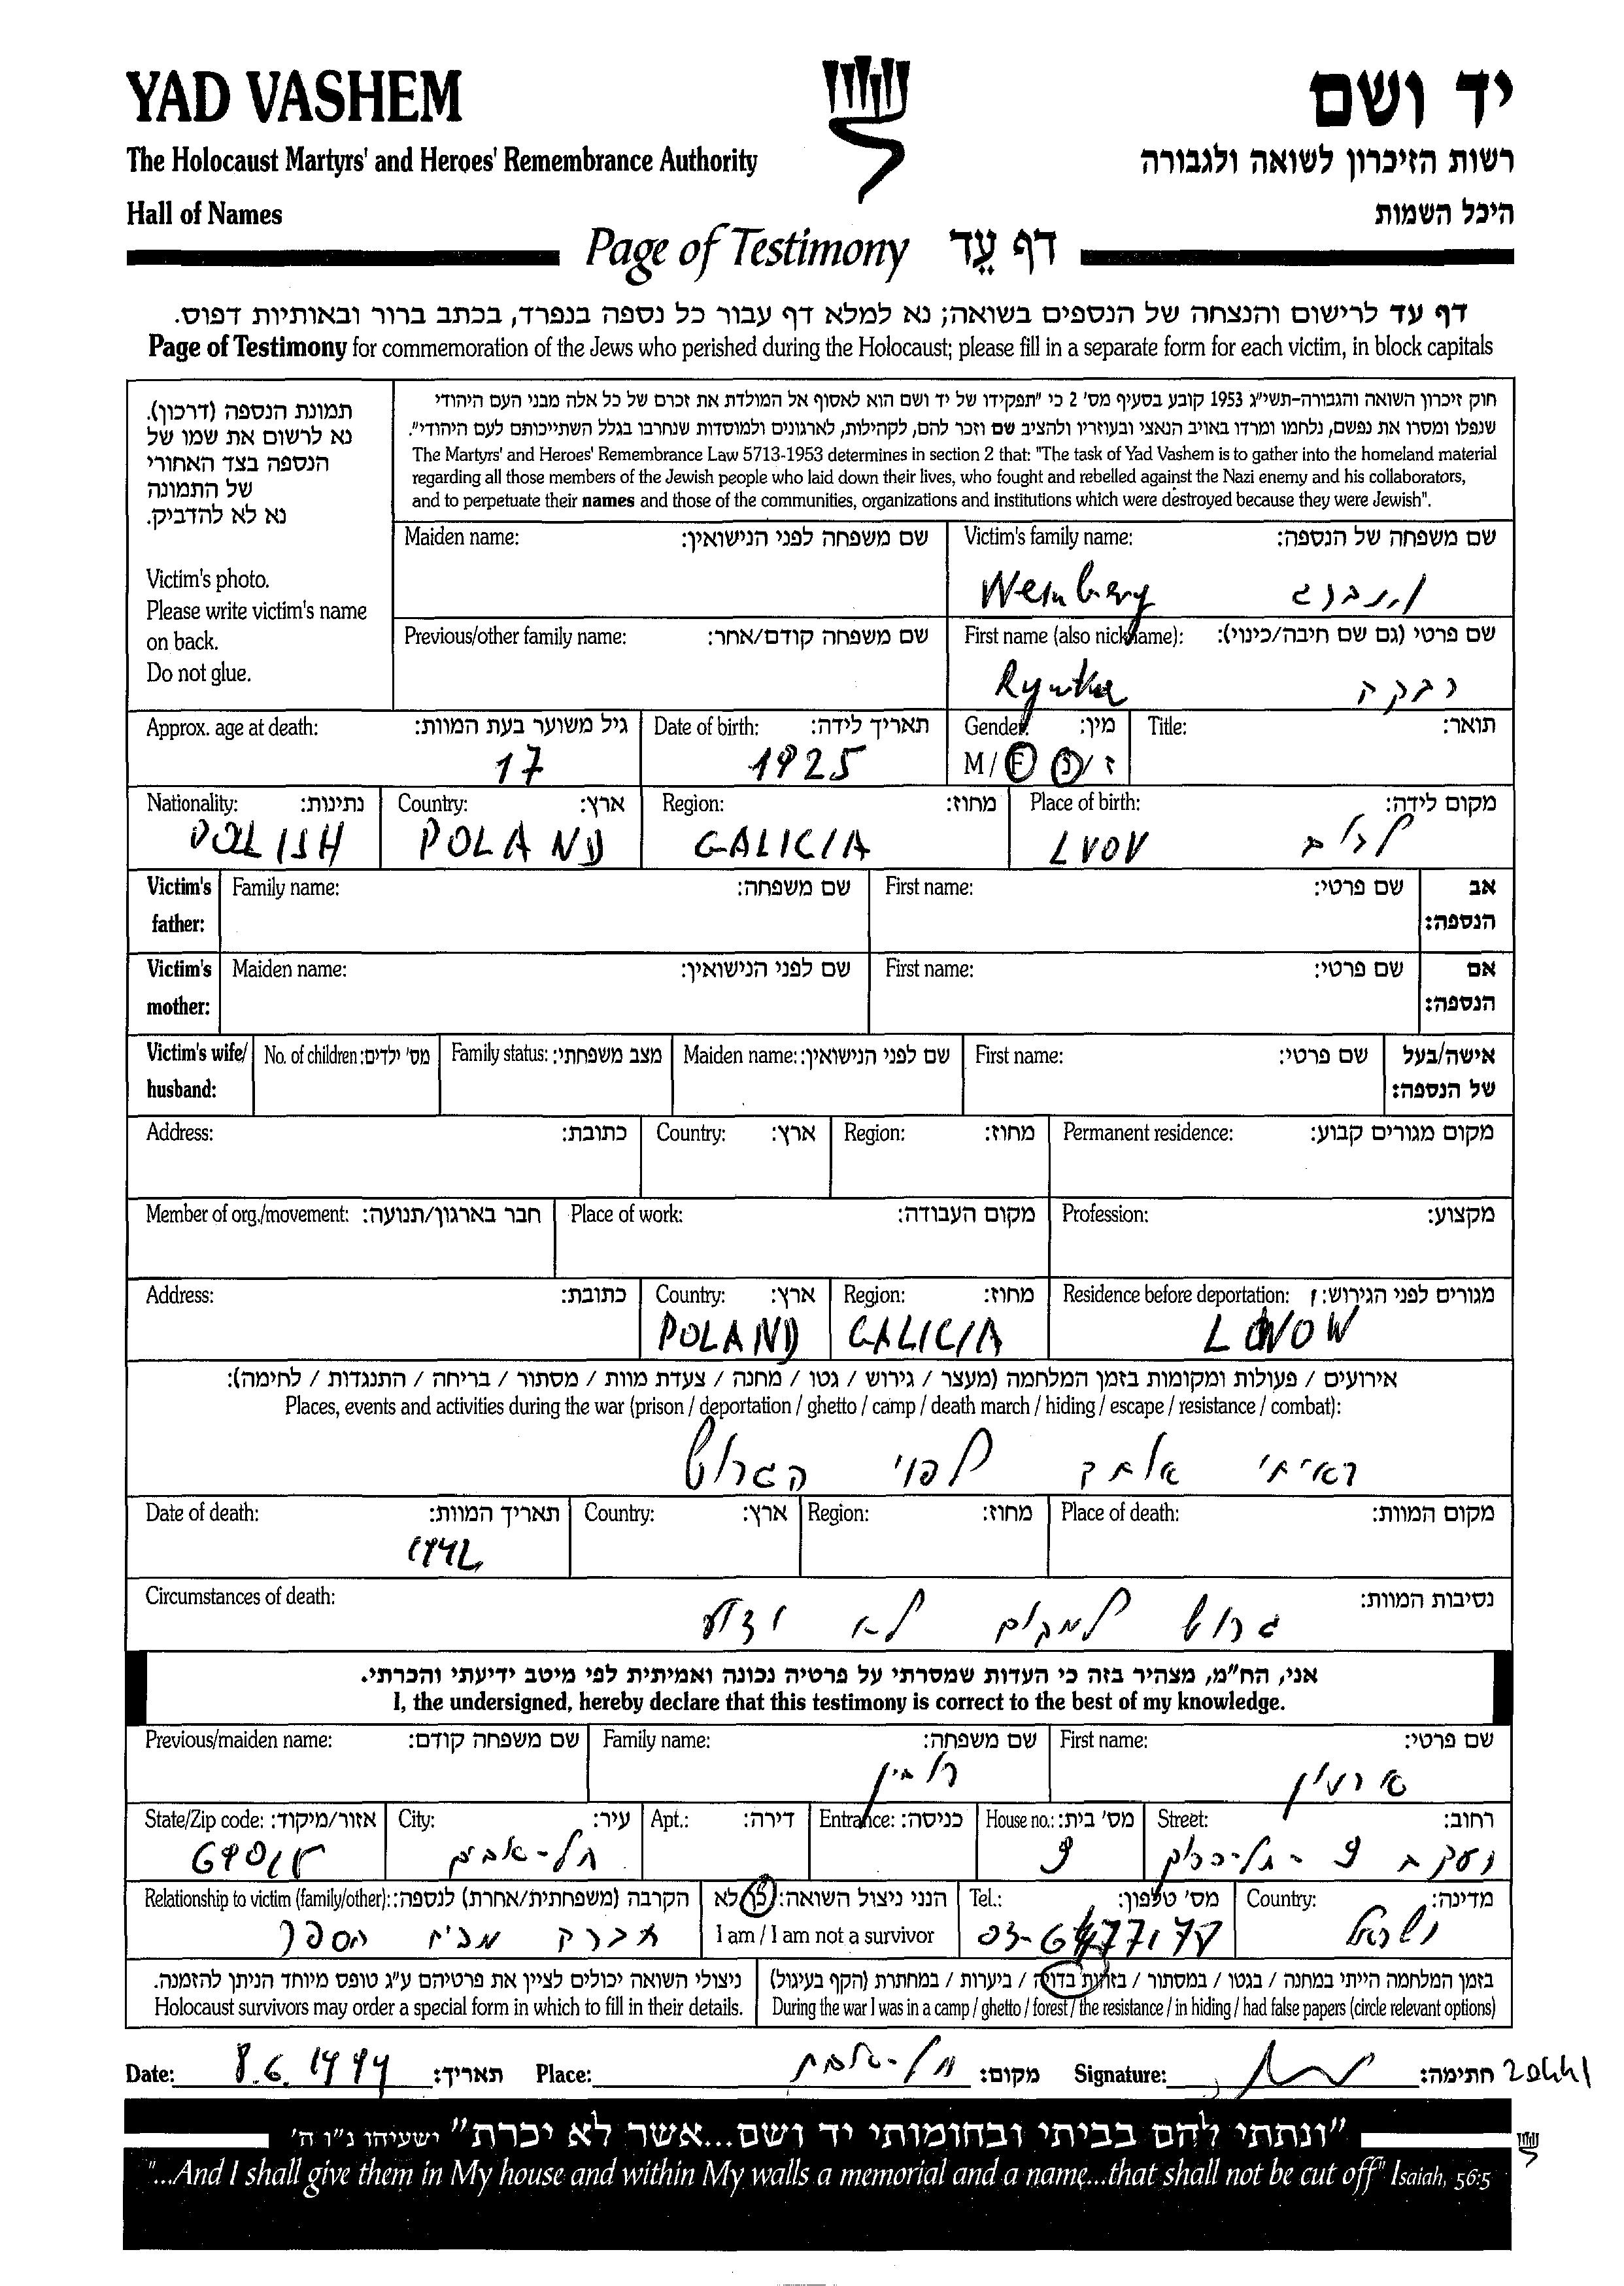 YAD VASHEM יד ושם
The Holocaust Martyrs' and Heroes' Remembrance Authority רשות הזיכרון לשואה ולגבורה
Hall of Names היכל השמות
Page of Testimony דף עֵד
דף עד לרישום והנצחה של הנספים בשואה; נא למלא דף עבור כל נספה בנפרד, בכתב ברור ובאותיות דפוס.
Page of Testimony for commemoration of the Jews who perished during the Holocaust; please fill in a separate form for each victim, in block capitals
תמונת הנספה (דרכון).
נא לרשום את שמו של
הנספה בצד האחורי
של התמונה
נא לא להדביק.
Victim's photo.
Please write victim's name
on back.
Do not glue.
חוק זיכרון השואה והגבורה-תשי״ג 1953 קובע בסעיף מס' 2 כי "תפקידו של יד ושם הוא לאסוף אל המולדת את זכרם של כל אלה מבני העם היהודי
שנפלו ומסרו את נפשם, נלחמו ומרדו באויב הנאצי ובעוזריו ולהציב שם וזכר להם, לקהילות, לארגונים ולמוסדות שנחרבו בגלל השתייכותם לעם היהודי".
The Martyrs' and Heroes' Remembrance Law 5713-1953 determines in section 2 that: "The task of Yad Vashem is to gather into the homeland material
regarding all those members of the Jewish people who laid down their lives, who fought and rebelled against the Nazi enemy and his collaborators,
and to perpetuate their names and those of the communities, organizations and institutions which were destroyed because they were Jewish".
Maiden name: שם משפחה לפני הנישואין: Victim's family name: שם משפחה של הנספה:
Weinberg וינברג
Previous/other family name: שם משפחה קודם/אחר: First name (also nickname): שם פרטי (גם שם חיבה/כינוי):
Rywka רבקה
Approx. age at death: גיל משוער בעת המוות: Date of birth: תאריך לידה: Gender: מין: Title: תואר:
17 1925 M / F נ / ז
Nationality: נתינות: Country: ארץ: Region: מחוז: Place of birth: מקום לידה:
POLISH POLAND GALICIA LVOV לבוב
Victim's Family name: שם משפחה: First name: שם פרטי: אב
father: הנספה:
Victim's Maiden name: שם לפני הנישואין: First name: שם פרטי: אם
mother: הנספה:
Victim's wife/ No. of children: מס' ילדים: Family status: מצב משפחתי: Maiden name: שם לפני הנישואין: First name: שם פרטי: אישה/בעל
husband: של הנספה:
Address: כתובת: Country: ארץ: Region: מחוז: Permanent residence: מקום מגורים קבוע:
Member of org./movement: חבר בארגון/תנועה: Place of work: מקום העבודה: Profession: מקצוע:
Address: כתובת: Country: ארץ: Region: מחוז: Residence before deportation: מגורים לפני הגירוש:
POLAND GALICIA LWOW
אירועים / פעולות ומקומות בזמן המלחמה (מעצר / גירוש / גטו / מחנה / צעדת מוות / מסתור / בריחה / התנגדות / לחימה):
Places, events and activities during the war (prison / deportation / ghetto / camp / death march / hiding / escape / resistance / combat):
ראיתי אותה לפני הגרוש
Date of death: תאריך המוות: Country: ארץ: Region: מחוז: Place of death: מקום המוות:
1942
Circumstances of death: נסיבות המוות:
גרוש למקום לא ידוע
אני, הח״מ, מצהיר בזה כי העדות שמסרתי על פרטיה נכונה ואמיתית לפי מיטב ידיעתי והכרתי.
I, the undersigned, hereby declare that this testimony is correct to the best of my knowledge.
Previous/maiden name: שם משפחה קודם: Family name: שם משפחה: First name: שם פרטי:
רובין
State/Zip code: אזור/מיקוד: City: עיר: Apt.: דירה: Entrance: כניסה: House no.: מס' בית: Street: רחוב:
תל-אביב 9
Relationship to victim (family/other): הקרבה (משפחתית/אחרת) לנספה: הנני ניצול השואה: כן/לא Tel.: מס' טלפון: Country: מדינה:
חברה מבית הספר I am / I am not a survivor ישראל
ניצולי השואה יכולים לציין את פרטיהם ע״ג טופס מיוחד הניתן להזמנה. בזמן המלחמה הייתי במחנה / בגטו / במסתור / בזהות בדויה / ביערות / במחתרת (הקף בעיגול)
Holocaust survivors may order a special form in which to fill in their details. During the war I was in a camp / ghetto / forest / the resistance / in hiding / had false papers (circle relevant options)
Date: 8.6.1999 תאריך: Place: תל-אביב מקום: Signature: חתימה:
"ונתתי להם בביתי ובחומותי יד ושם...אשר לא יכרת" ישעיהו נ״ו ה'
"...And I shall give them in My house and within My walls a memorial and a name...that shall not be cut off" Isaiah, 56:5